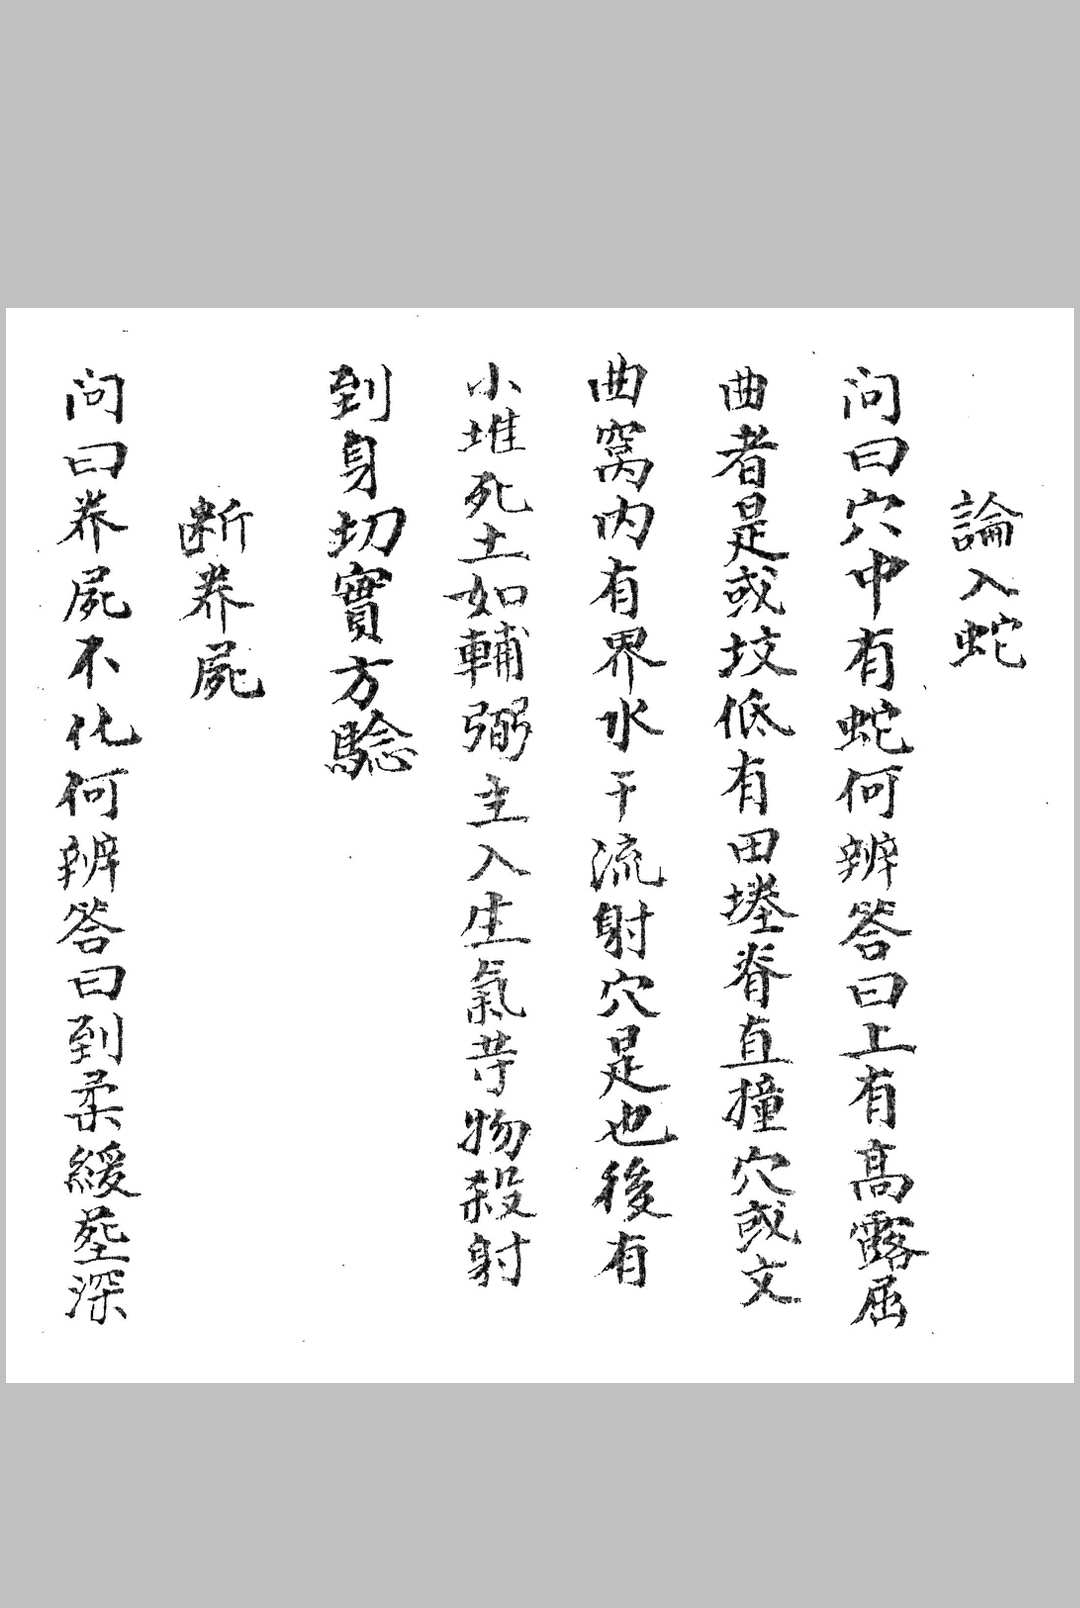 論入蛇
问曰穴中有蛇何辨答曰上有高露屈
曲者是或坟低有田塍脊直撞穴或文
曲窝内有界水干流射穴是也後有
小堆死土如輔弼主入生氣䓁物殺射
到身切實方驗
断养屍
问曰养屍不化何辨答曰到柔緩塟深